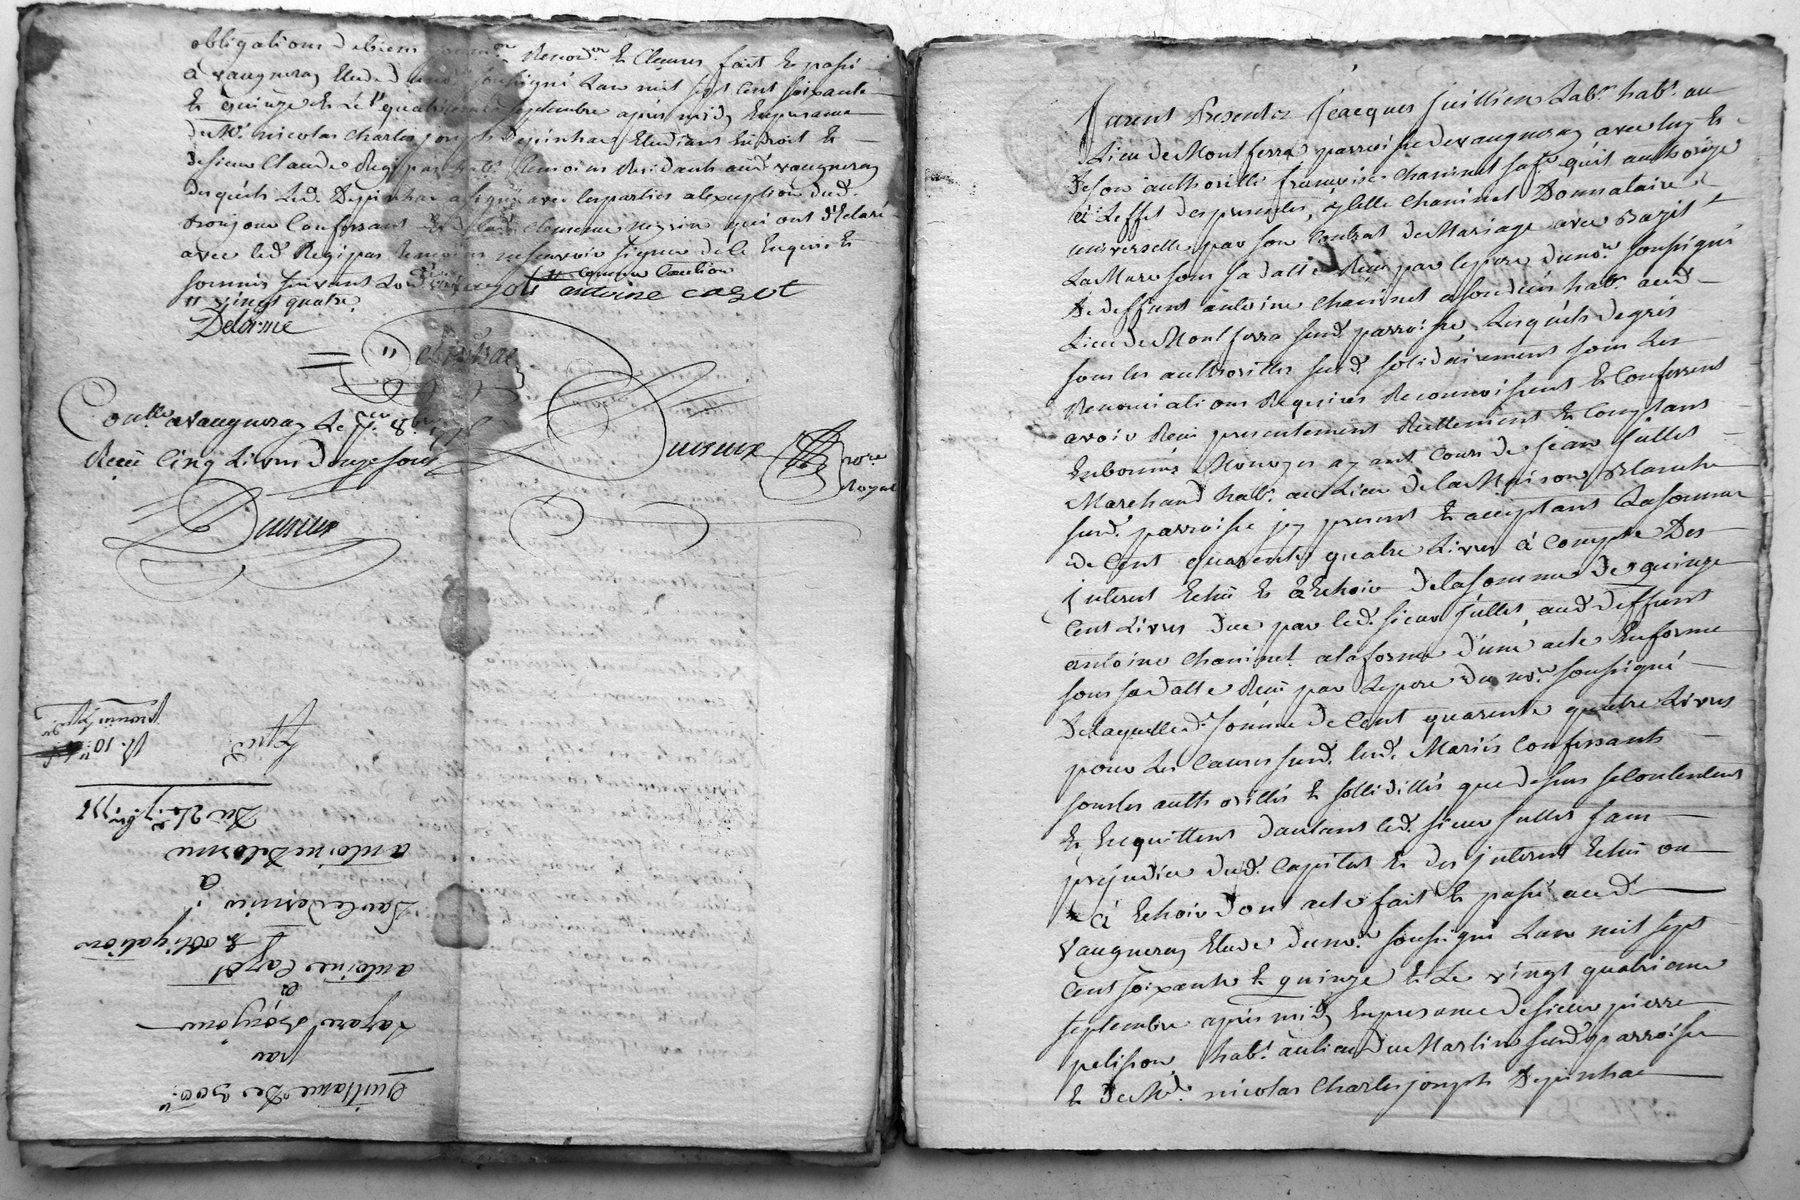 obligations de biens Renon.on & Clauses fait & passé
à vaugneray Etude du no.re soussigné L'an mil sept cent soixante
& quinze & le vingt quatrieme septembre après midy En presence
de Mr. nicolas charles joseph Depinhac Etudiant En droit &
de sieur Claude Regipas temoins Residants aud. vaugneray
desquels Led. Depinhac a signé avec les parties a l'exception dud.
bonjour Confessant & de lad. clemence qui ont déclaré
avec led. Regipas temoins ne sçavoir signer de ce Enquis &
sommés suivant
" vingt quatre
antoine cazot
Delorme
Depinhac
Con.lle a vaugneray Le 8.bre
Reçu Cinq Livres douze sous
no.re
Royal
Quittance De 300.#
par
à
antoine Cazot
& obligation
Par le dernier
à
antoine Delorme
Du 24 7.bre 1775
Exped.
Furent Presents Jeacques Juillien Lab.r hab.t au
Lieu de Montferra parroisse de vaugneray avec luy &
de son authorité francoise Chaninet sa fe. qu'il authorize
à L'effet des presentes, y celle Chaninet Donnataire
universelle par son Contrat de Mariage avec
La Mure sous sa datte Reçu par le pere du no.re soussigné
De deffunt antoine Chaninet a son deces hab.t aud.
Lieu de Montferra sud. parroisse, Lesquels de gres
sous les authorittés sud. solidairement sous Les
Renonciations Requises Reconnoissent & Confessent
avoir Reçu presentement Reellement & Comptant
En bonnes Monoyes ayant Cours de jean jullet
Marchand hab.t au Lieu de la Maison Blanche
sud. parroisse jcy present & acceptant La somme
de Cent quarente quatre Livres à Compte Des
jnterest Echu & à Echoir de la somme de quinze
Cent Livres due par led. sieur jullet aud. deffunt
antoine Chaninet a la forme d'une acte En forme
sous sa datte Reçu par Le pere du no.re soussigné
De laquelle d. somme de Cent quarente quatre Livres
pour Les Causes sud. lesd. Mariés Confessants
sous les authorittés & sollidittés que dessus se Contentent
& Enquittent d'autant led. sieur jullet sans
prejudice dud. Capital & des jnterest Echu ou
à Echoir dont acte fait & passé aud.
vaugneray Etude du no.re soussigné L'an mil sept
Cent soixante & quinze & Le vingt quatrieme
septembre après midy En presence de sieur pierre
pelisson hab.t au lieu du Martin sud. parroisse
& de Mr. nicolas Charles joseph Depinhac